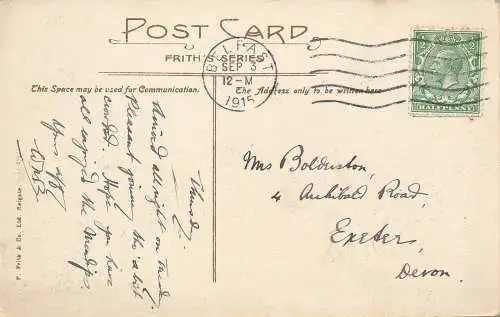 POST CARD
FRITH'S SERIES
BELFAST
SEP 3
12-M
1915
HALFPENNY
This Space may be used for Communication.
The Address only to be written here
Thursday.
Arrived all right on Tuesd.
Pleasant journey tho' a bit
crowded. Hope you have
all enjoyed the
Yours aff.
Mrs
4 Archibald Road,
Exeter,
Devon.
F. Frith & Co. Ltd. Reigate.